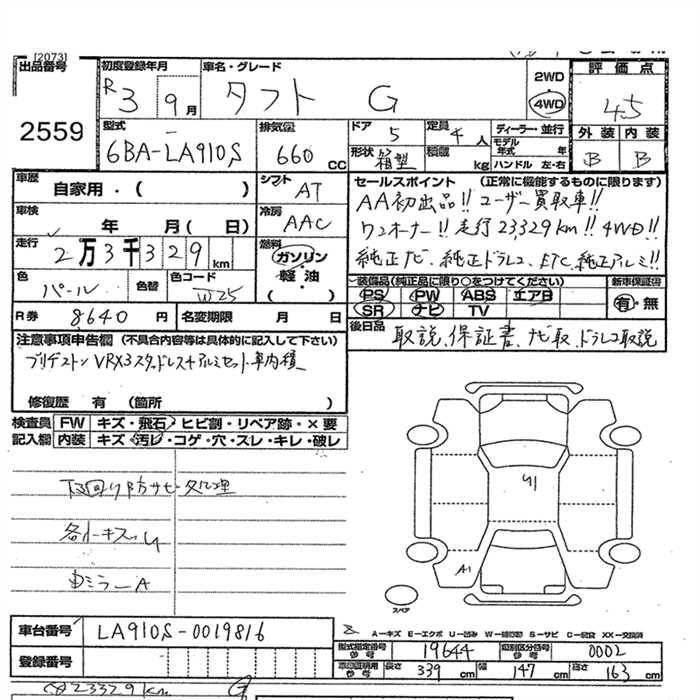 [2073]
出品番号 初度登録年月 車名・グレード 2WD 評価点
R3 9月 タフト G 4WD 4.5
2559 型式 排気量 ドア 5 定員 4人 ディーラー・並行 外装 内装
モデル年式 年
6BA-LA910S 660 CC 形状 箱型 積載 kg ハンドル 左・右 B B
車歴 自家用・( ) シフト AT セールスポイント (正常に機能するものに限ります)
AA初出品!! ユーザー買取車!!
車検 年 月( 日) 冷房 AAC ワンオーナー!! 走行23,329km!! 4WD!!
走行 2万3千329km 燃料 ガソリン・軽油・( ) 純正ナビ、純正ドラレコ、ETC、純正アルミ!!
色 パール 色替 色コード W25 装備品(純正品に限り○をつけてください) 新車保証書
PS PW ABS エアB 有・無
SR ナビ TV
R券 8640円 名変期限 月 日 後日品 取説、保証書、ナビ取、ドラレコ取説
注意事項申告欄(不具合内容等は具体的に記入して下さい)
ブリヂストンVRX3スタッドレス+アルミセット車内積
修復歴 有 (箇所 )
検査員記入欄 FW キズ・飛石・ヒビ割・リペア跡・×要
内装 キズ・汚レ・コゲ・穴・スレ・キレ・破レ
下回り防サビ処理
U1
各小キズ、U
ミラーA
A1
スペア
車台番号 LA910S-0019816
A-キズ E-エクボ U-凹み W-補修跡 S-サビ C-腐食 XX-交換済
登録番号 型式指定番号参考 19644 類別区分番号参考 0002
車両証明用参考 長さ 339cm 幅 147cm 高さ 163cm
23329km